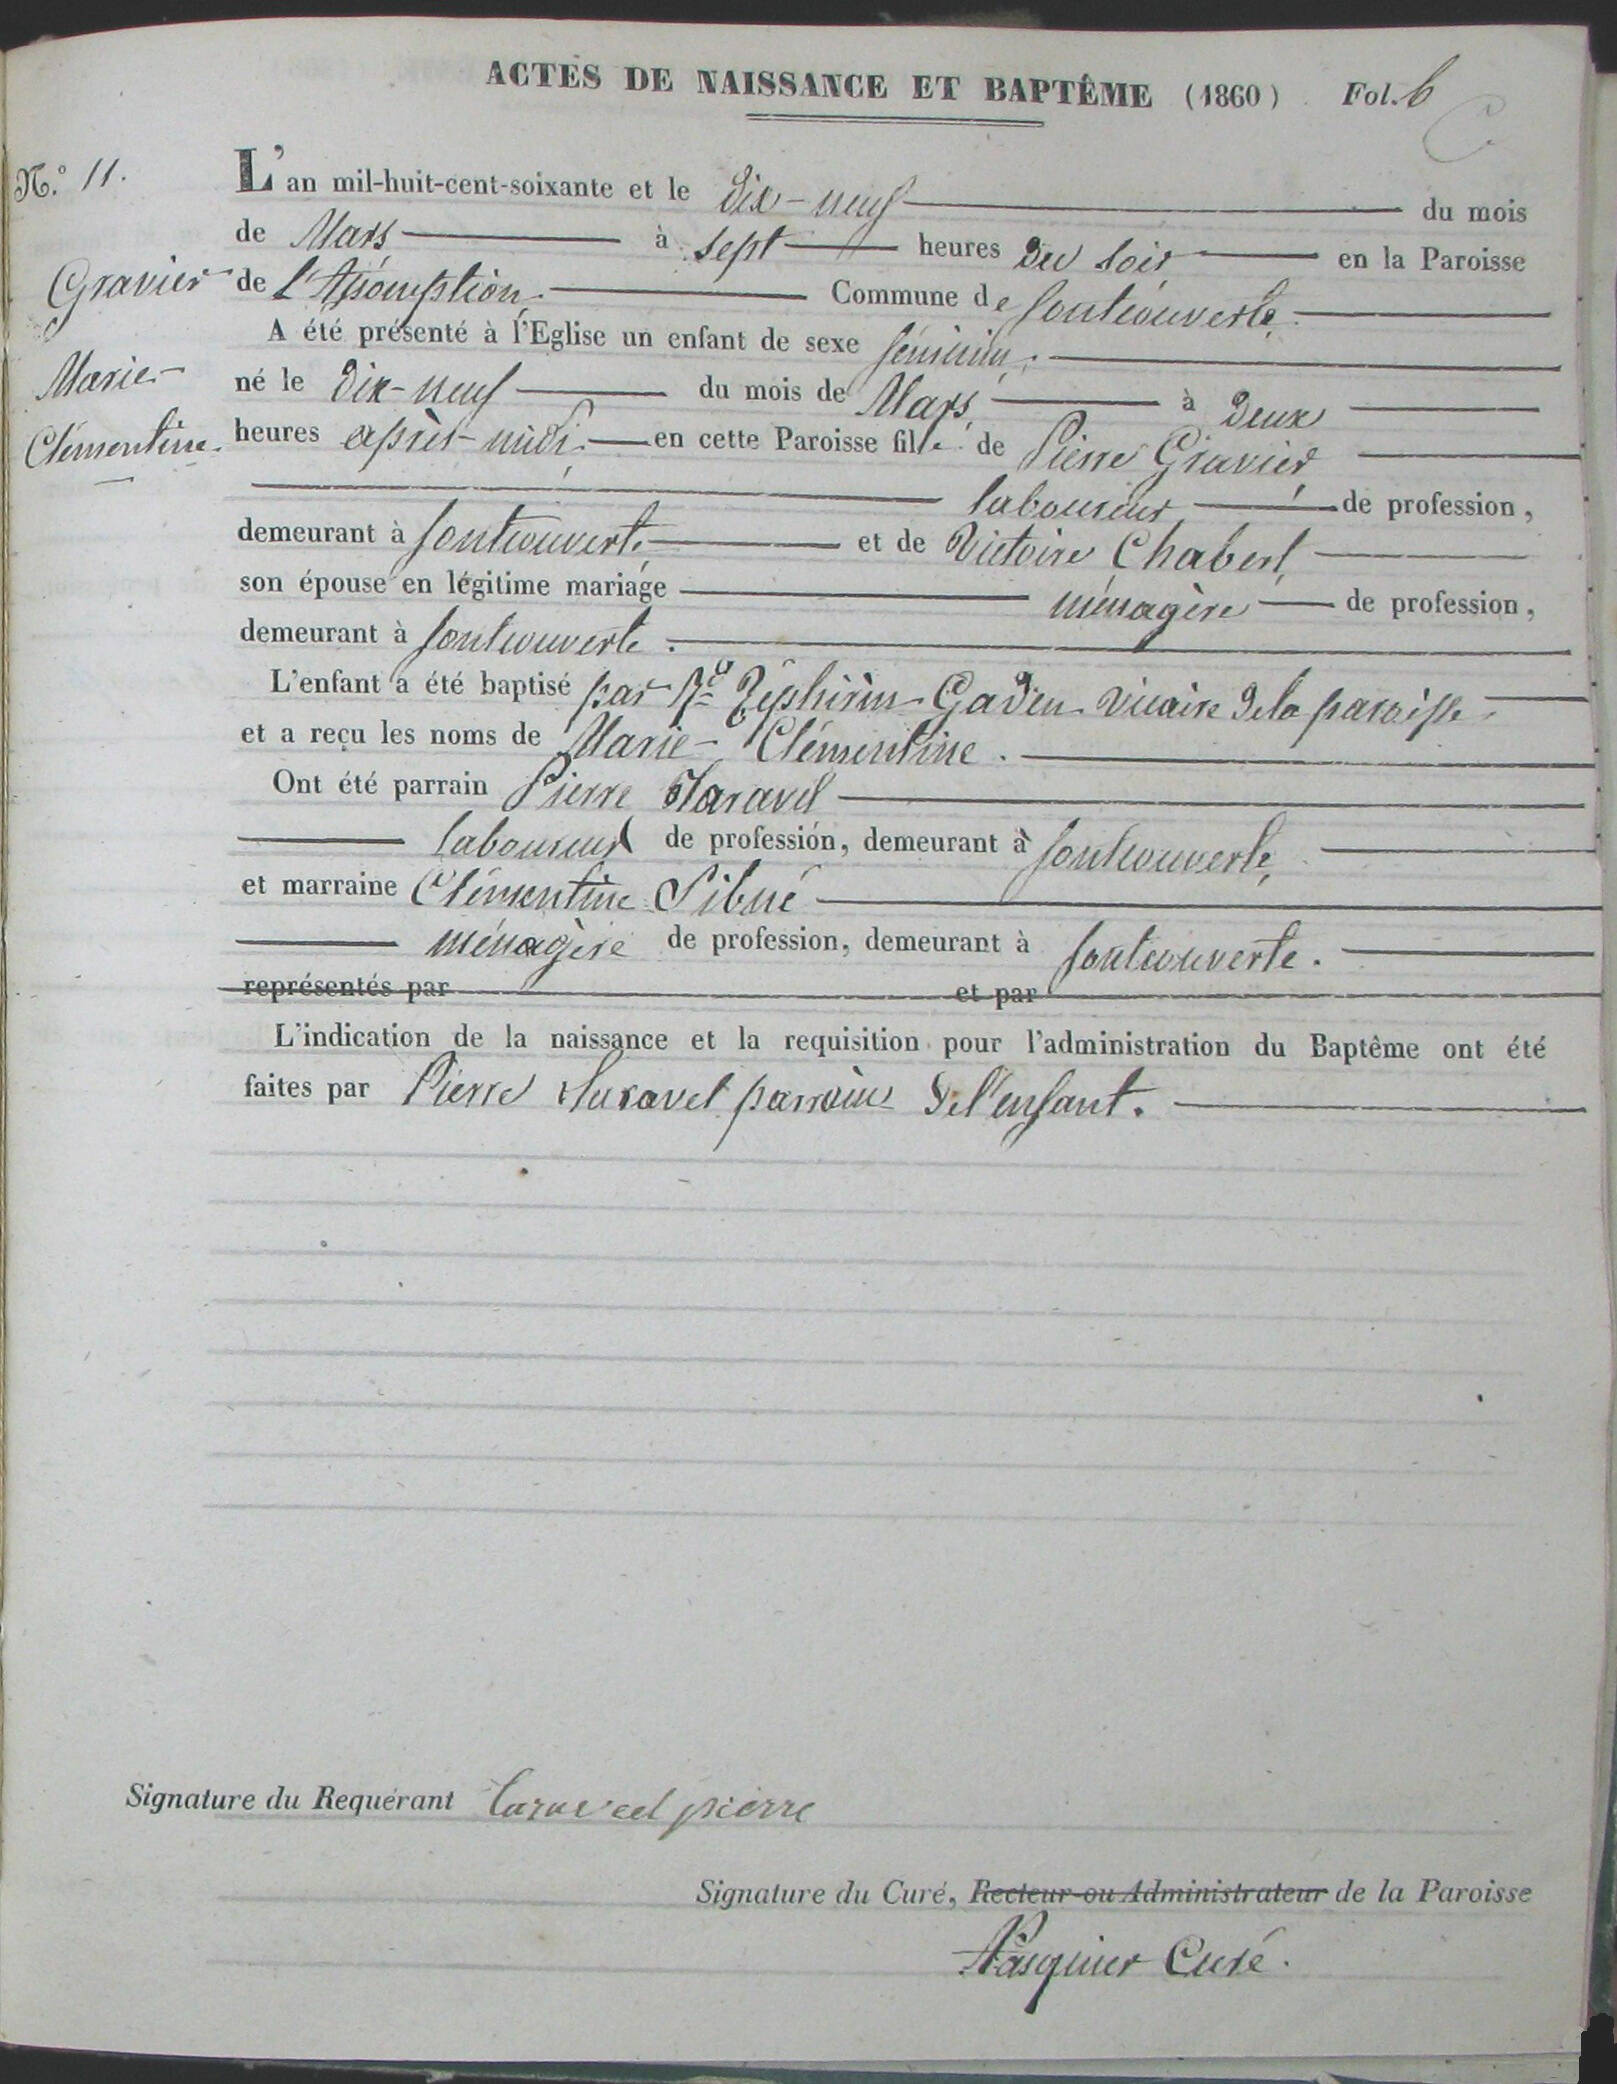 ACTES DE NAISSANCE ET BAPTÊME (1860) Fol. 6
N.° 11.
L'an mil-huit-cent-soixante et le dix-neuf du mois
de Mars à sept heures du soir en la Paroisse
Gravier
de l'Assomption. Commune de fontcouverte.
A été présenté à l'Eglise un enfant de sexe féminin.
Marie-
né le dix-neuf du mois de Mars à deux
Clémentine.
heures après-midi en cette Paroisse fille de Pierre Gravier
laboureur de profession,
demeurant à fontcouverte et de Victoire Chabert,
son épouse en légitime mariage ménagère de profession,
demeurant à fontcouverte.
L'enfant a été baptisé par Rd Zéphirin Gaden vicaire de la paroisse
et a reçu les noms de Marie-Clémentine.
Ont été parrain Pierre Taravel
laboureur de profession, demeurant à fontcouverte,
et marraine Clémentine Sibué
ménagère de profession, demeurant à fontcouverte.
représentés par et par
L'indication de la naissance et la requisition pour l'administration du Baptême ont été
faites par Pierre Taravel parrain de l'enfant.
Signature du Requérant taravel pierre
Signature du Curé, Recteur ou Administrateur de la Paroisse
Pasquier Curé.